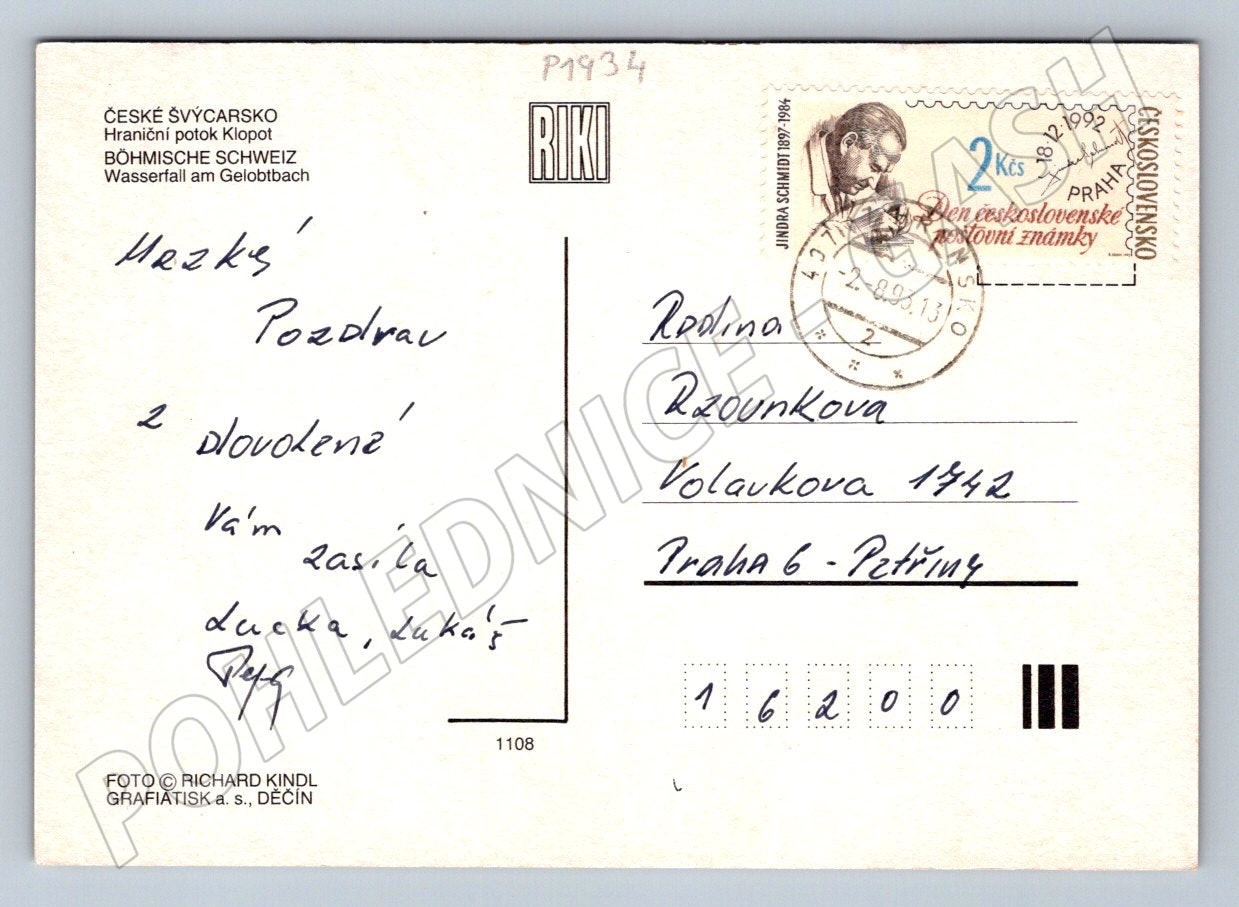 P1934
ČESKÉ ŠVÝCARSKO
Hraniční potok Klopot
BÖHMISCHE SCHWEIZ
Wasserfall am Gelobtbach
RIKI
JINDRA SCHMIDT 1897-1984
2 Kčs
18.12.1992
PRAHA
ČESKOSLOVENSKO
Den československé
poštovní známky
-2.-8.93.13
2
Hezký
Pozdrav
z dovolené
Vám
zasílá
Lucka, Lukáš
Rodina
Rzounkova
Volavkova 1742
Praha 6 - Petřiny
16200
1108
FOTO © RICHARD KINDL
GRAFIATISK a. s., DĚČÍN
POHLEDNICE_GASH